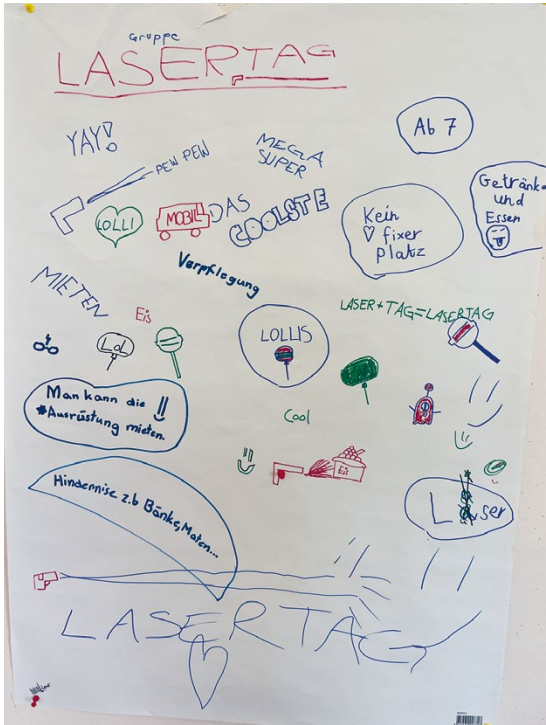 Gruppe
LASERTAG
YAY!
PEW PEW
MEGA
SUPER
Ab 7
Getränke
und
Essen
LOLLI
MOBIL
DAS
COOLSTE
Kein
fixer
Platz
Verpflegung
MIETEN
Eis
Lol
LOLLIS
LASER+TAG=LASERTAG
Man kann die
*Ausrüstung mieten.
Cool
Eis
Hindernise z.b Bänke, Maten...
L ser
LASERTAG